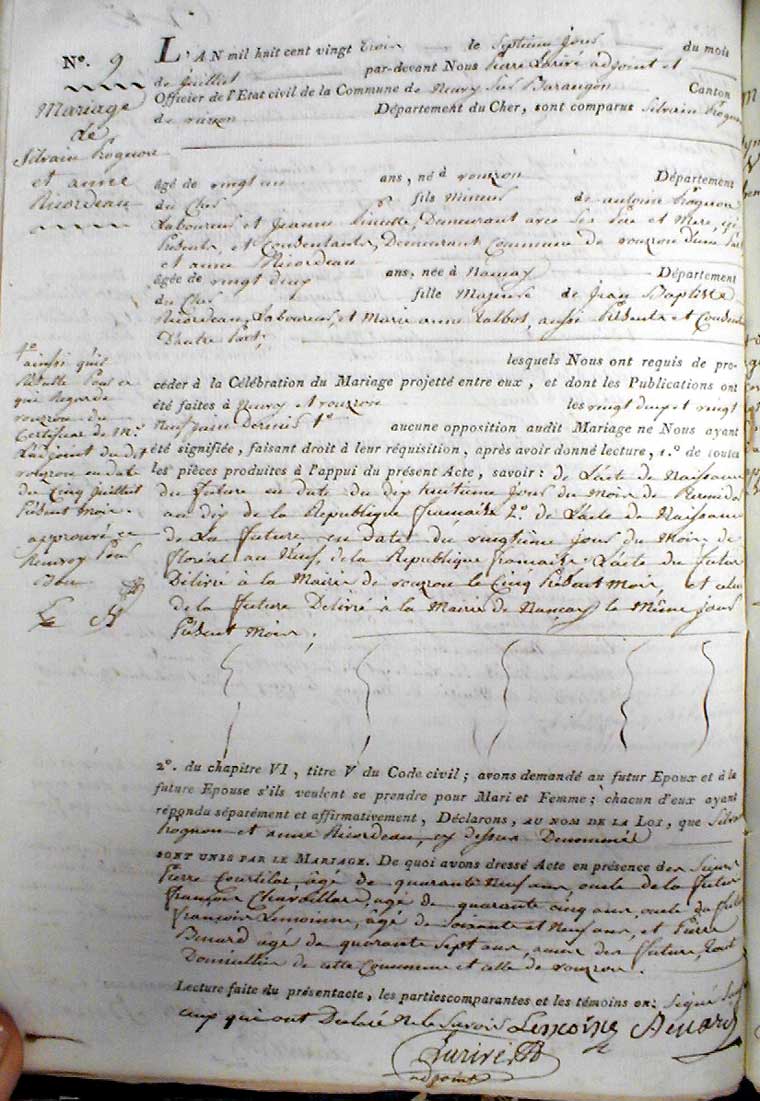 N°. 9
Mariage
de
Silvain Rognon
et anne
Ricordeau
L'AN mil huit cent vingt trois le Septieme Jour du mois
de Juillet par-devant Nous Pierre Larivé adjoint et
Officier de l'Etat civil de la Commune de Neuvy sur Barangon Canton
de vierzon Département du Cher, sont comparus Silvain Rognon
âgé de vingt un ans, né à vouzron Département
du Cher fils Mineur de antoine Rognon
Laboureur et Jeanne Demeurant avec Ses Pere et Mere, ici
Présents, et Consentants, Demeurant Commune de vouzron D'une Part
et anne Ricordeau
âgée de vingt deux ans, née à Nançay Département
du Cher fille Majeure de Jean Baptiste
Ricordeau, Laboureur, et Marie anne Talbot, aussi Présents et Consent
D'autre Part,
lesquels Nous ont requis de pro-
céder à la Célébration du Mariage projetté entre eux, et dont les Publications ont
été faites à Neuvy et vouzron les vingt deux et vingt
neuf Juin Dernier 1°
aucune opposition audit Mariage ne Nous ayant
été signifiée, faisant droit à leur réquisition, après avoir donné lecture, 1.° de toutes
les pièces produites à l'appui du présent Acte, savoir: de L'acte de Naissance
du future en date du dix huitieme Jour du Mois de
an dix de la Republique française 2°. de L'acte de Naissance
de La future en date du vingtieme Jour du Mois de
floréal an Neuf, de la Republique française L'acte du futur
Délivré à la Mairie de vouzron le Cinq Présent Mois, et celui
de la future Délivré à la Mairie de Nançay le Même Jour
Présent Mois.
1°
ainsi qu'il
Résulte Pour ce
qui Regarde
vouzron du
Certificat de Mr.
L'adjoint du dit
vouzron en date
du Cinq Juillet
Présent Mois.
approuvé
Renvoy Pour
Bon
2°. du chapitre VI, titre V du Code civil; avons demandé au futur Epoux et à la
future Epouse s'ils veulent se prendre pour Mari et Femme; chacun d'eux ayant
répondu séparément et affirmativement, Déclarons, AU NOM DE LA LOI, que Silvain
Rognon et anne Ricordeau, cy dessus Denommés
SONT UNIS PAR LE MARIAGE. De quoi avons dressé Acte en présence des Sieurs
Pierre âgé de quarante Neuf ans, oncle de la future
françois âgé de quarante cinq ans, oncle du futur
françois Lemoinne, âgé de Soixante et Neuf ans, et Pierre
Benard âgé de quarante Sept ans, amis des future, Tout
Domicilier de cette Commune et celle de vouzron.
Lecture faite du présent acte, les parties comparantes et les témoins ont Signé
ceux qui ont Declaré Ne le Savoir Lemoine Benard
Larivé
adjoint